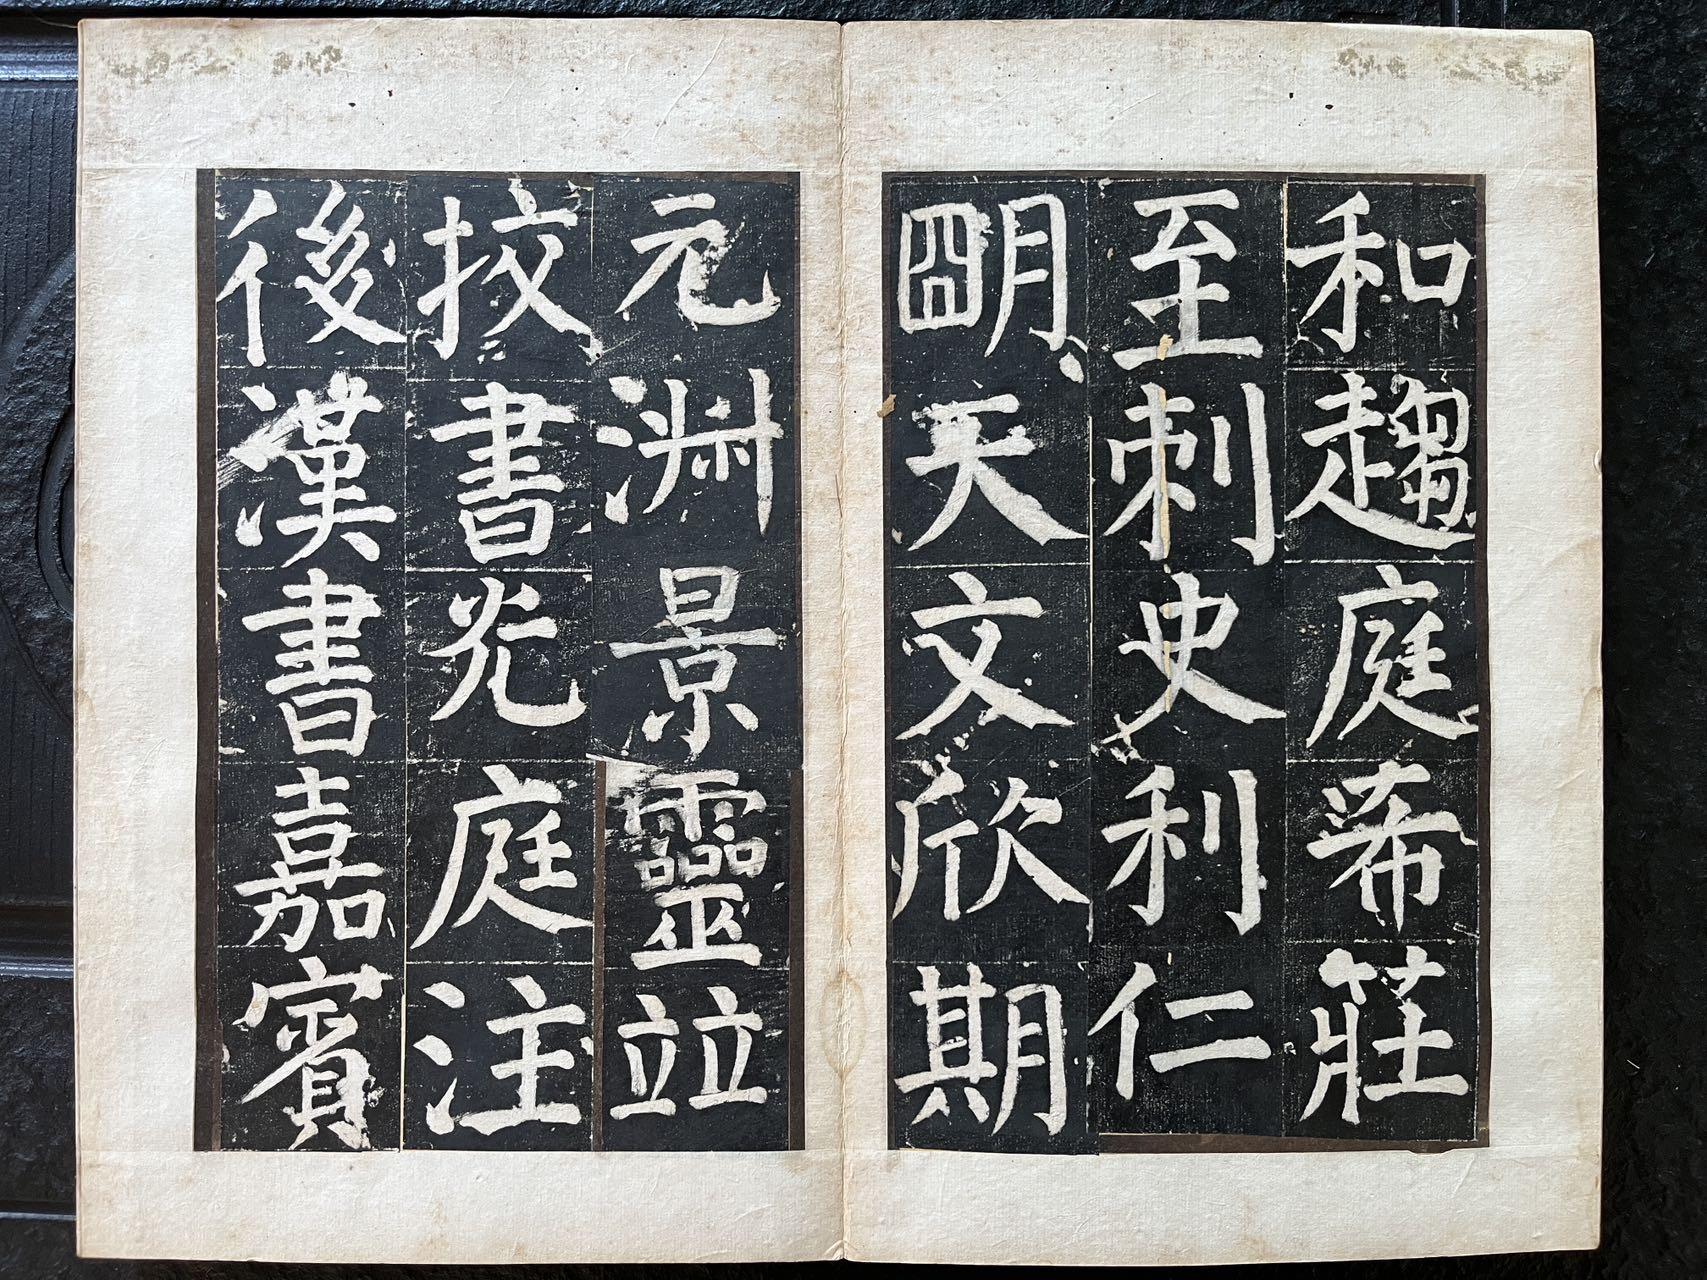 和趨庭希莊
至刺史利仁
朙天文欣期
元淵景靈並
挍書光庭注
後漢書嘉賓